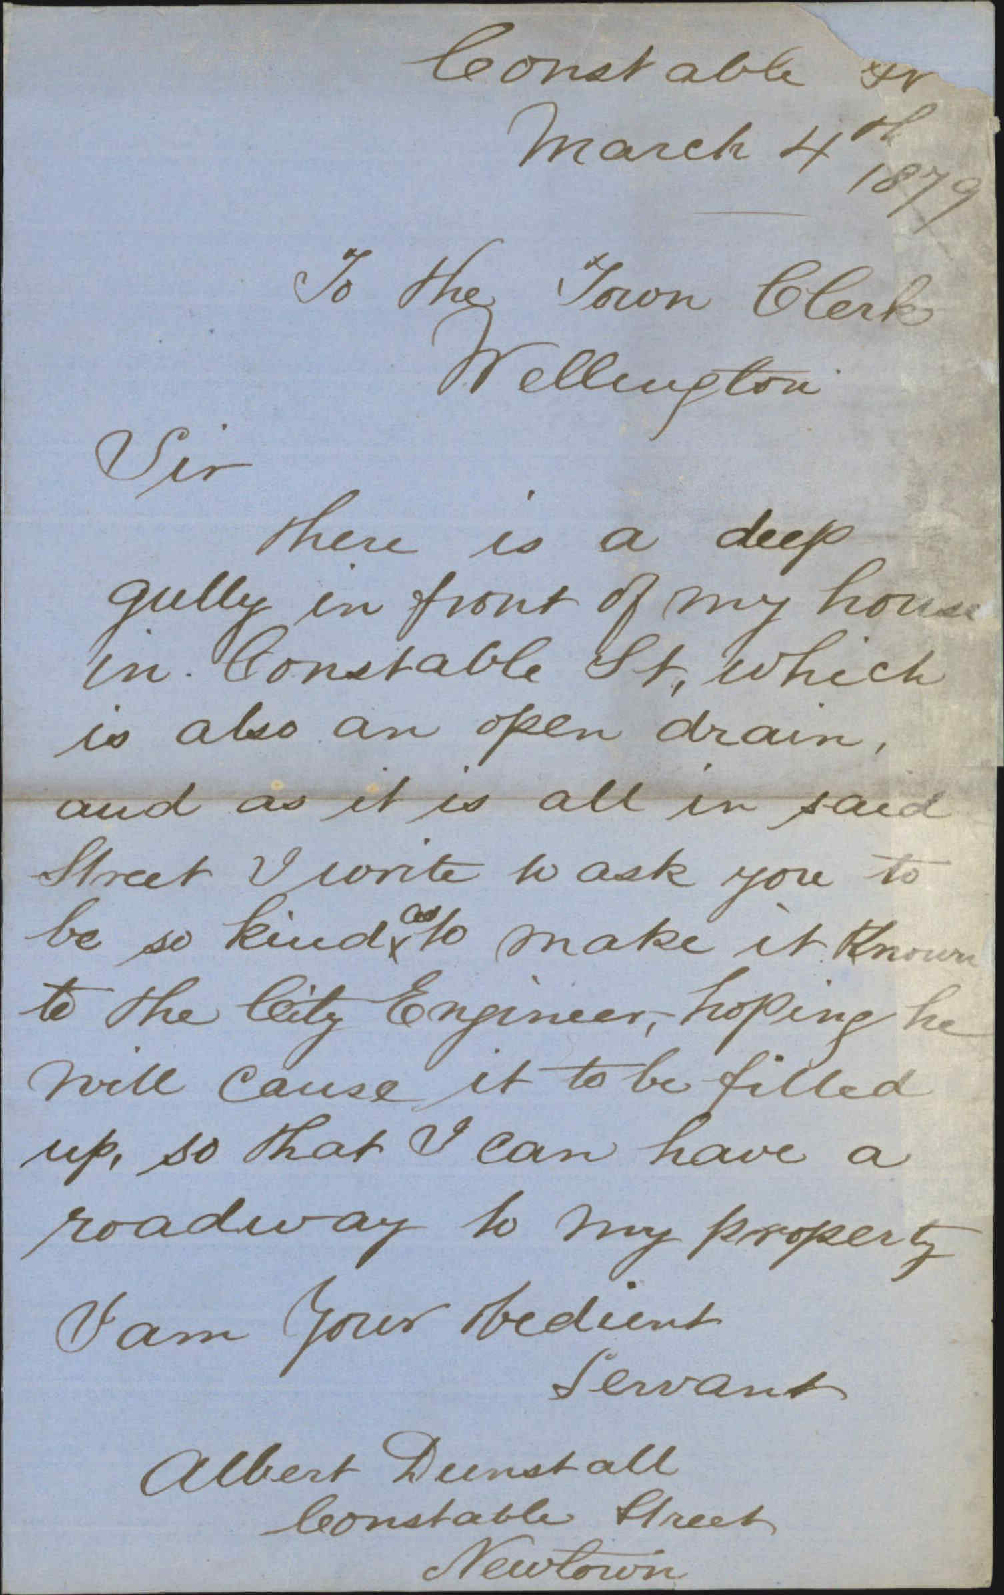 Constable St
March 4th
1879
To the Town Clerk
Wellington
Sir
there is a deep
gully in front of my house
in. Constable St, which
is also an open drain,
and as it is all in said
Street I write to ask you to
be so kind as to make it Known
to the City Engineer, hoping he
will cause it to be filled
up, so that I can have a
roadway to my property
I am Your obedient
Servant
Albert Dunstall
Constable Street
Newtown